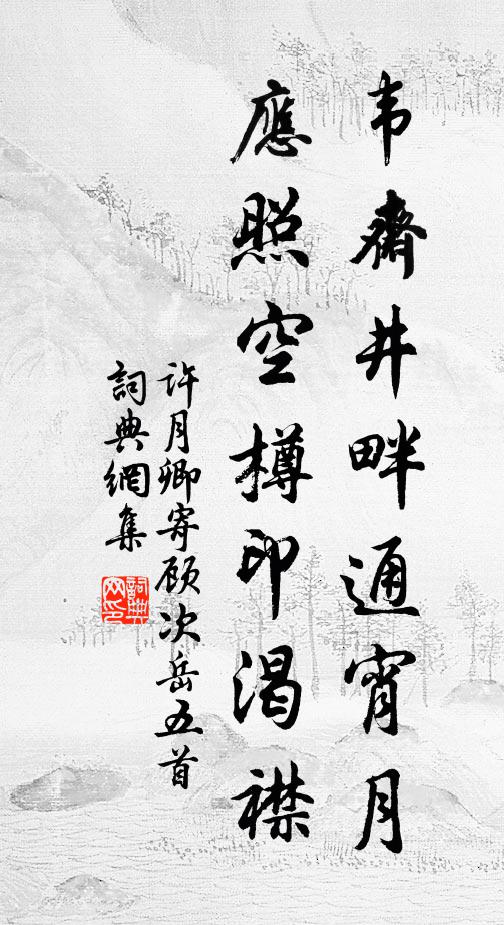 韦齋井畔通宵月
應照空樽印渴襟
许月卿寄顾次岳五首
詞典網集
詞典網印